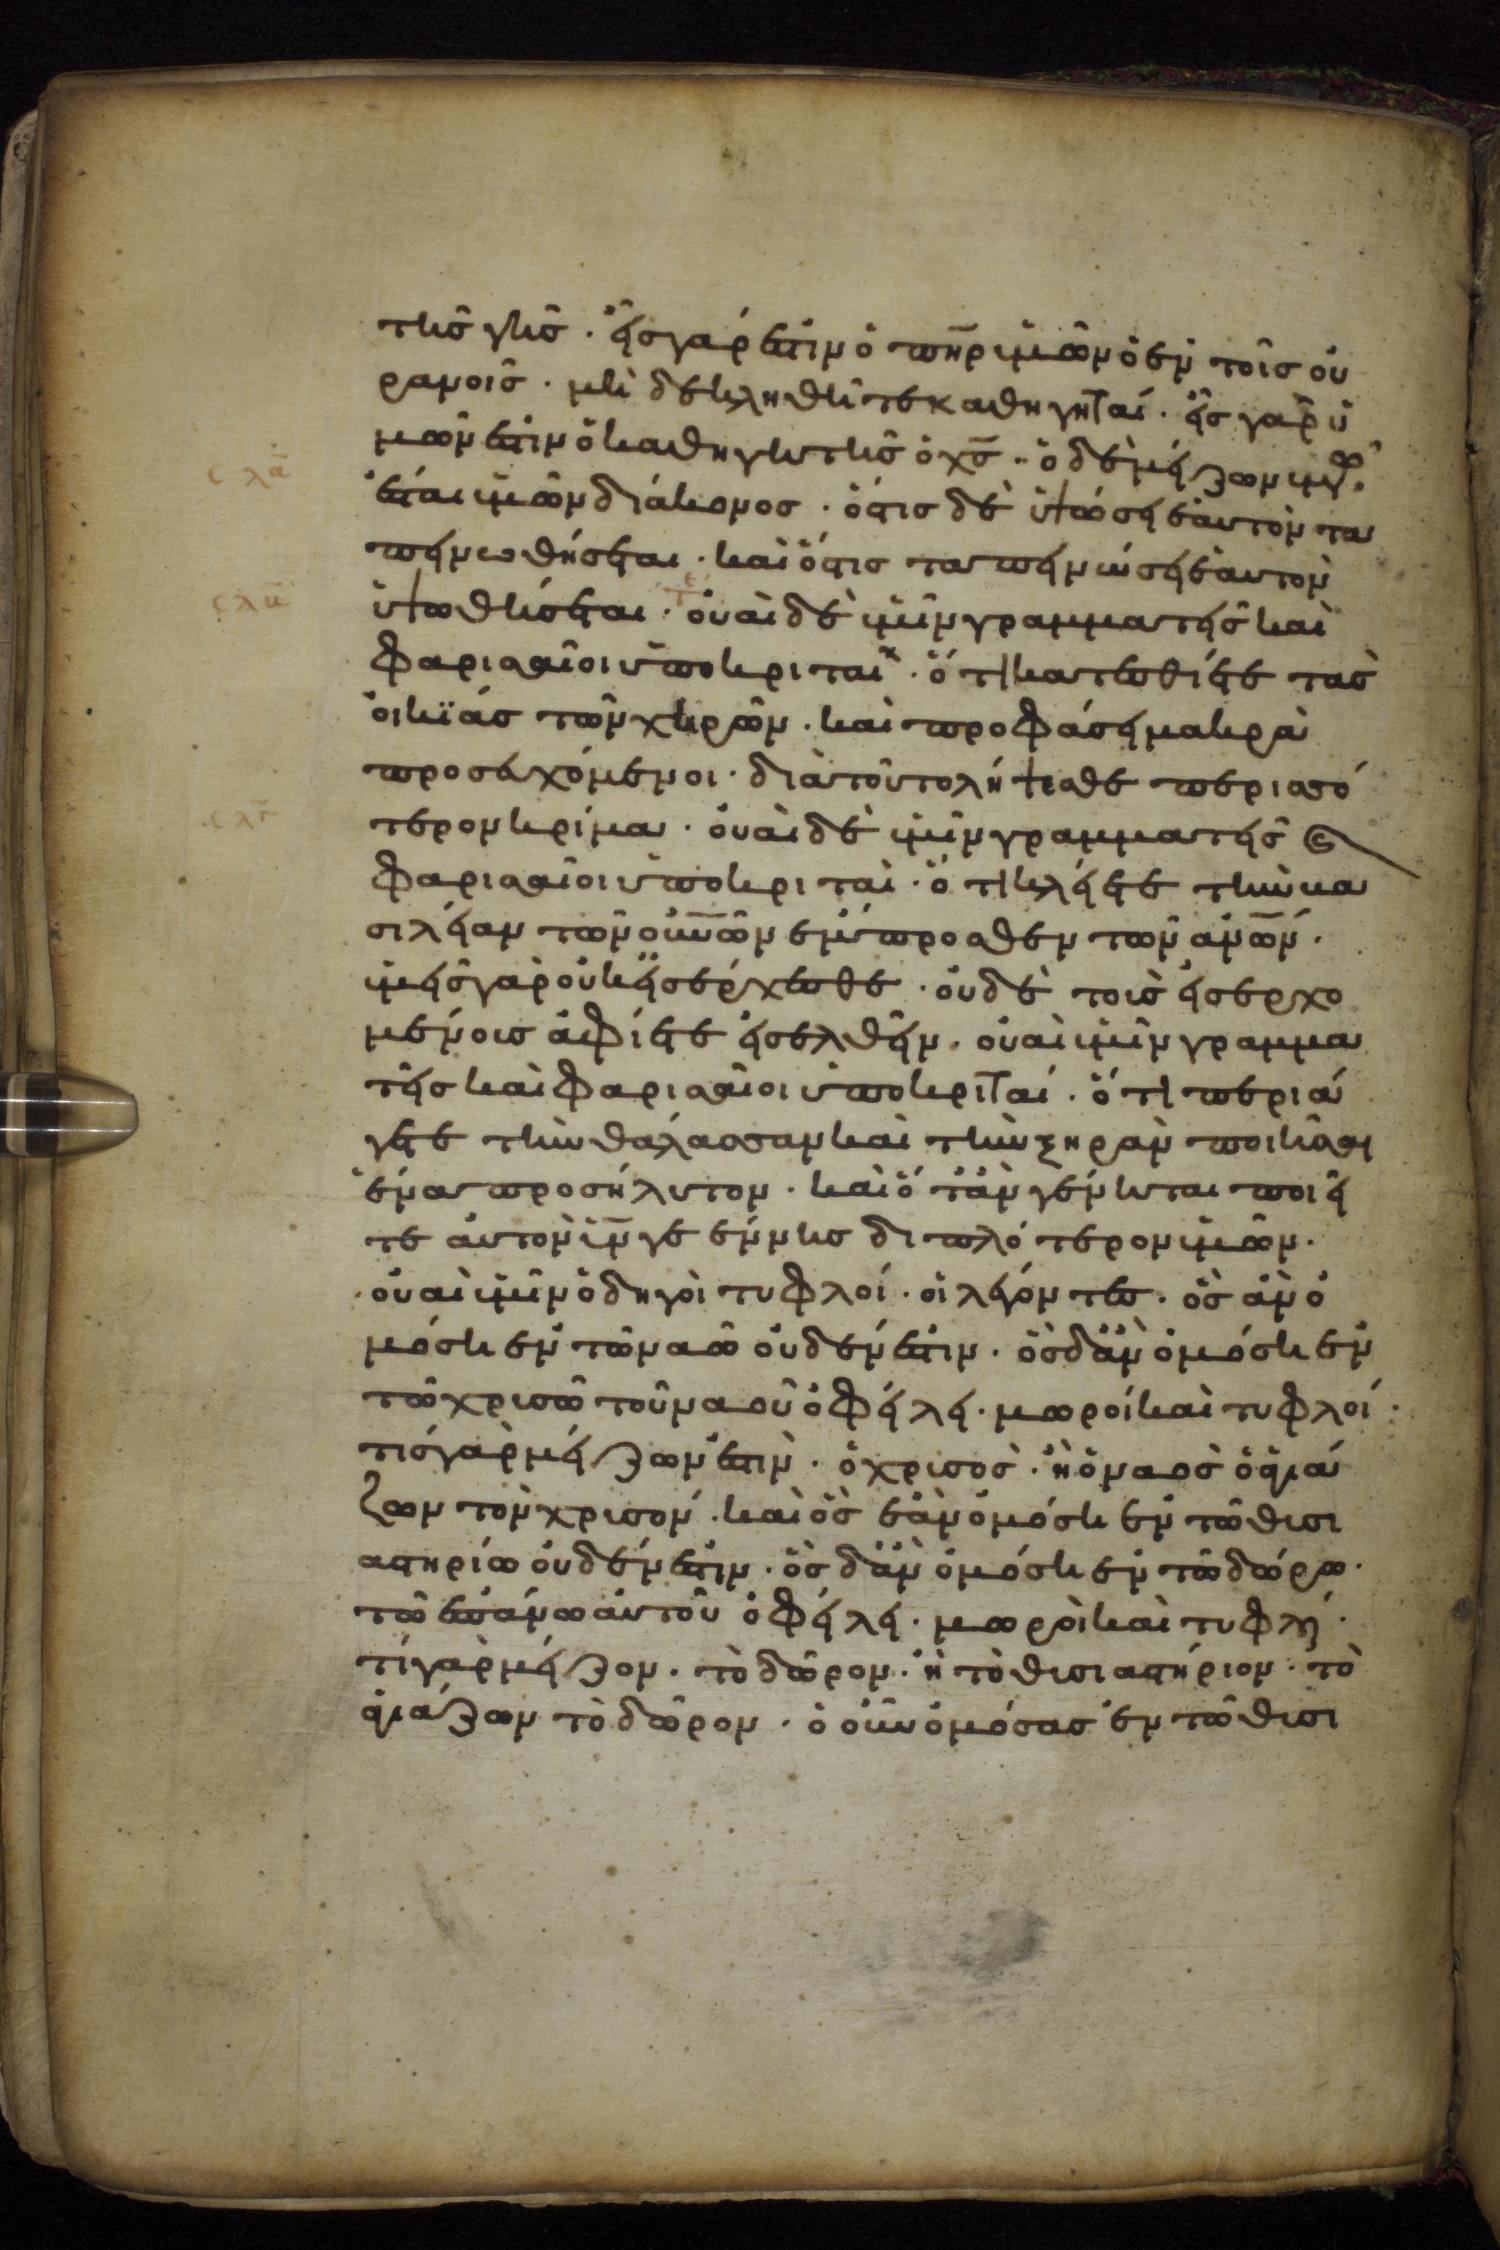 τῆς γῆς · εἷς γάρ ἐστιν ὁ π̅η̅ρ ἡμῶν ὁ ἐν τοῖς οὐ
ρανοῖς · μὴ δὲ κληθῆτε καθηγηταί · εἷς γὰρ ὑ
μῶν ἐστιν ὁ καθηγητὴς ὁ χ̅ς̅ · ὁ δὲ μείζων
ςλα ἔσται ὑμῶν διάκονος · ὅστις δὲ ὑψώσει ἑαυτὸν τα
πεινωθήσεται · καὶ ὅστις ταπεινώσει ἑαυτὸν
ςλβ ὑψωθήσεται · οὐαὶ δὲ ὑμῖν γραμματεῖς καὶ
φαρισαῖοι ὑποκριταί · ὅτι κατεσθίετε τὰς
οἰκϊάς τῶν χηρῶν · καὶ προφάσει μακρὰ
προσευχόμενοι · διὰ τοῦτο λήψεσθε περισσό
ςλγ τερον κρίμα · οὐαὶ δὲ ὑμῖν γραμματεῖς ϗ
φαρισαῖοι ὑποκριταὶ · ὅτι κλείετε τὴν βα
σιλείαν τῶν ο̅υ̅ν̅ῶν ἔμπροσθεν τῶν α̅ν̅ῶν ·
ὑμεῖς γὰρ οὐκ εἰσέρχεσθε · οὐδὲ τοὶς εἰσερχο
μένοις ἀφίετε εἰσελθεῖν · οὐαὶ ὑμῖν γραμμα
τεῖς καὶ φαρισαῖοι ὑποκριταί · ὅτι περιά
γετε τὴν θάλασσαν καὶ τὴν ξηρὰν ποιῆσαι
ἕνα προσήλυτον · καὶ ὅταν γένηται ποιεῖ
τε αὐτὸν ὑ̅ν̅ γεέννης διπλότερον ὑμῶν ·
οὐαὶ ὑμῖν ὁδηγοὶ τυφλοί · οἱ λέγοντες · ὃς ἂν ὀ
μόση ἐν τῶ ναῶ οὐδέν ἐστιν · ὃς δ' ἂν ὀμόση ἐν
τῶ χρισῶ τοῦ ναοῦ ὀφείλει · μωροί καὶ τυφλοί ·
τίς γὰρ μείζων ἐστιν · ὁ χρισὸς · ἢ ὁ ναὸς ὁ ἁγιά
ζων τὸν χρισόν · καὶ ὃς ἐὰν ὀμόση ἐν τῶ θισι
αστηρίω οὐδέν ἐστιν · ὃς δ' ἂν ὀμόση ἐν τῶ δώρω ·
τῶ ἐπάνω αὐτοῦ ὀφείλει · μωροὶ καὶ τυφλοί ·
τί γὰρ μείζον · τὸ δῶρον · ἢ τὸ θισιαστήριον · τὸ
ἁγιάζων τὸ δῶρον · ὁ οὖν ὀμόσας ἐν τῶ θισι